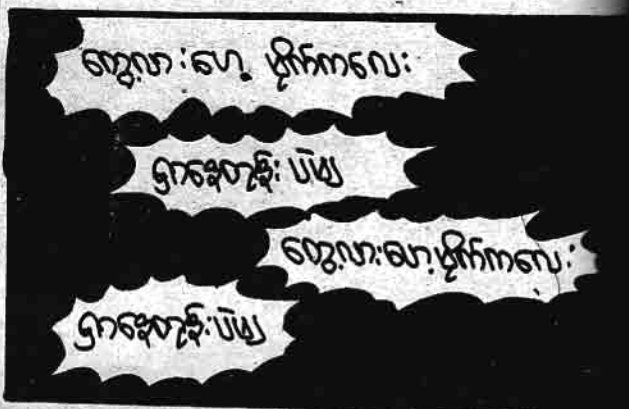 တွေ့လား ဟေ့ မိုက်ကလေး
ရှာနေတုန်း ပဲဗျ
တွေ့လားဟေ့ မိုက်ကလေး
ရှာနေတုန်းပဲဗျ